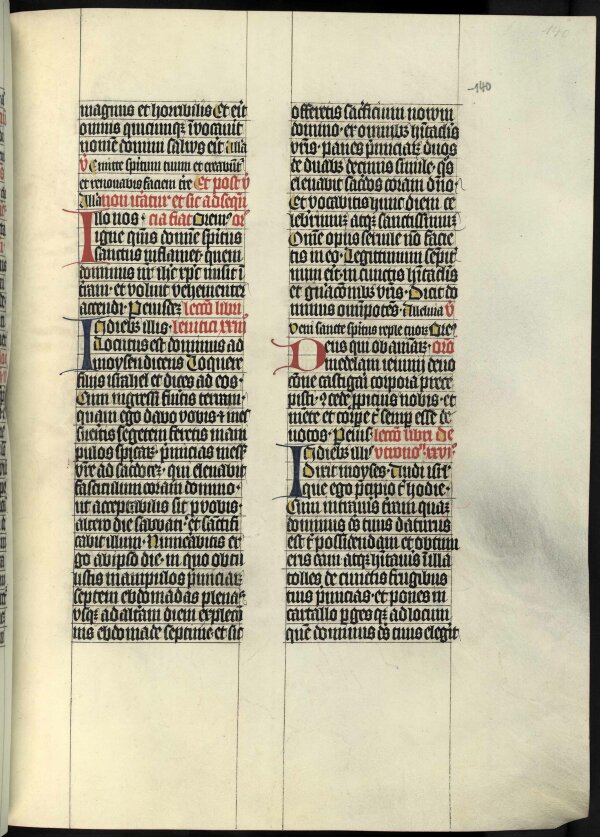 140
magnus et horribilis Et erit
omnis quicumqꝫ īvocaverit
nomē domini salvus erit Alla
v̄ Emitte spiritum tuum et creabunt̄
et renovabis faciem tr̄e Et post v̄
Alla non dicatur et sic ad sequē
Illo nos · tia fiat Orem9 or̄
igne qm̄s domine spiritus
sanctus inflamet · quem
dominus nr̄ ihc̄ xp̄c misit ī
terram · et voluit vehementer
accendi · Per eiusdē lectō libri
In diebꝫ illis · levitici xxiii
Locutus est dominus ad
moysen dicens Loquere
filiis israhel et dices ad eos ·
Cum ingressi fueritis terram ·
quam ego dabo vobis · et mes
sueritis segetem feretis mani
pulos spicaꝝ · primicias mess
vr̄e ad sacerdotē · qui elevabit
fasciculum coram domino ·
ut acceptabilis sit pro vobis ·
altero die sabbati · et sanctifi
cabit illum · Numerabitis er
go ab ipso die · in quo obtu
listis manipulos primiciaꝝ
septem ebdomadas plenas
usqꝫ ad alteram diem expletō
nis ebdomade septime · et sic
offeretis sacrificium novum
domino · et omnibꝫ habitaclis
vr̄is · panes primiciaꝝ duos
de duabꝫ decimis simile · qs
elevabit sacerdos coram dn̄o ·
Et vocabitis hunc diem ce
leberrimū · atqꝫ sanctissimū
Omne opus servile nō facie
tis in eo · Legittimum sempit
num erit · in cunctis habitaclis
et generacōnibꝫ vr̄is · Dicit do
minus omīpotens · Alleluia v̄
Veni sancte spiritus reple tuorꝫ Orē
Deus qui ob aīmarꝫ · orō
medelam ieiunii devo
cōne castigari corpora prece
pisti · concede propicius nobis · et
mente et corpore tibi semper esse de
votos · Per eius lectō libri de
In diebꝫ illis utronō · xxvi
Dixit moyses · Audi isrl̄
que ego precipio tibi hodie ·
Cum intraveris terram quaꝫ
dominus ds̄ tuus daturus
est tibi possidendam · et obtinu
eris eam atqꝫ habitaveris in illa
tolles de cunctis frugibus
tuis primicias · et pones in
cartallo · pergesqꝫ ad locum
quē dominus ds̄ tuus elegerit